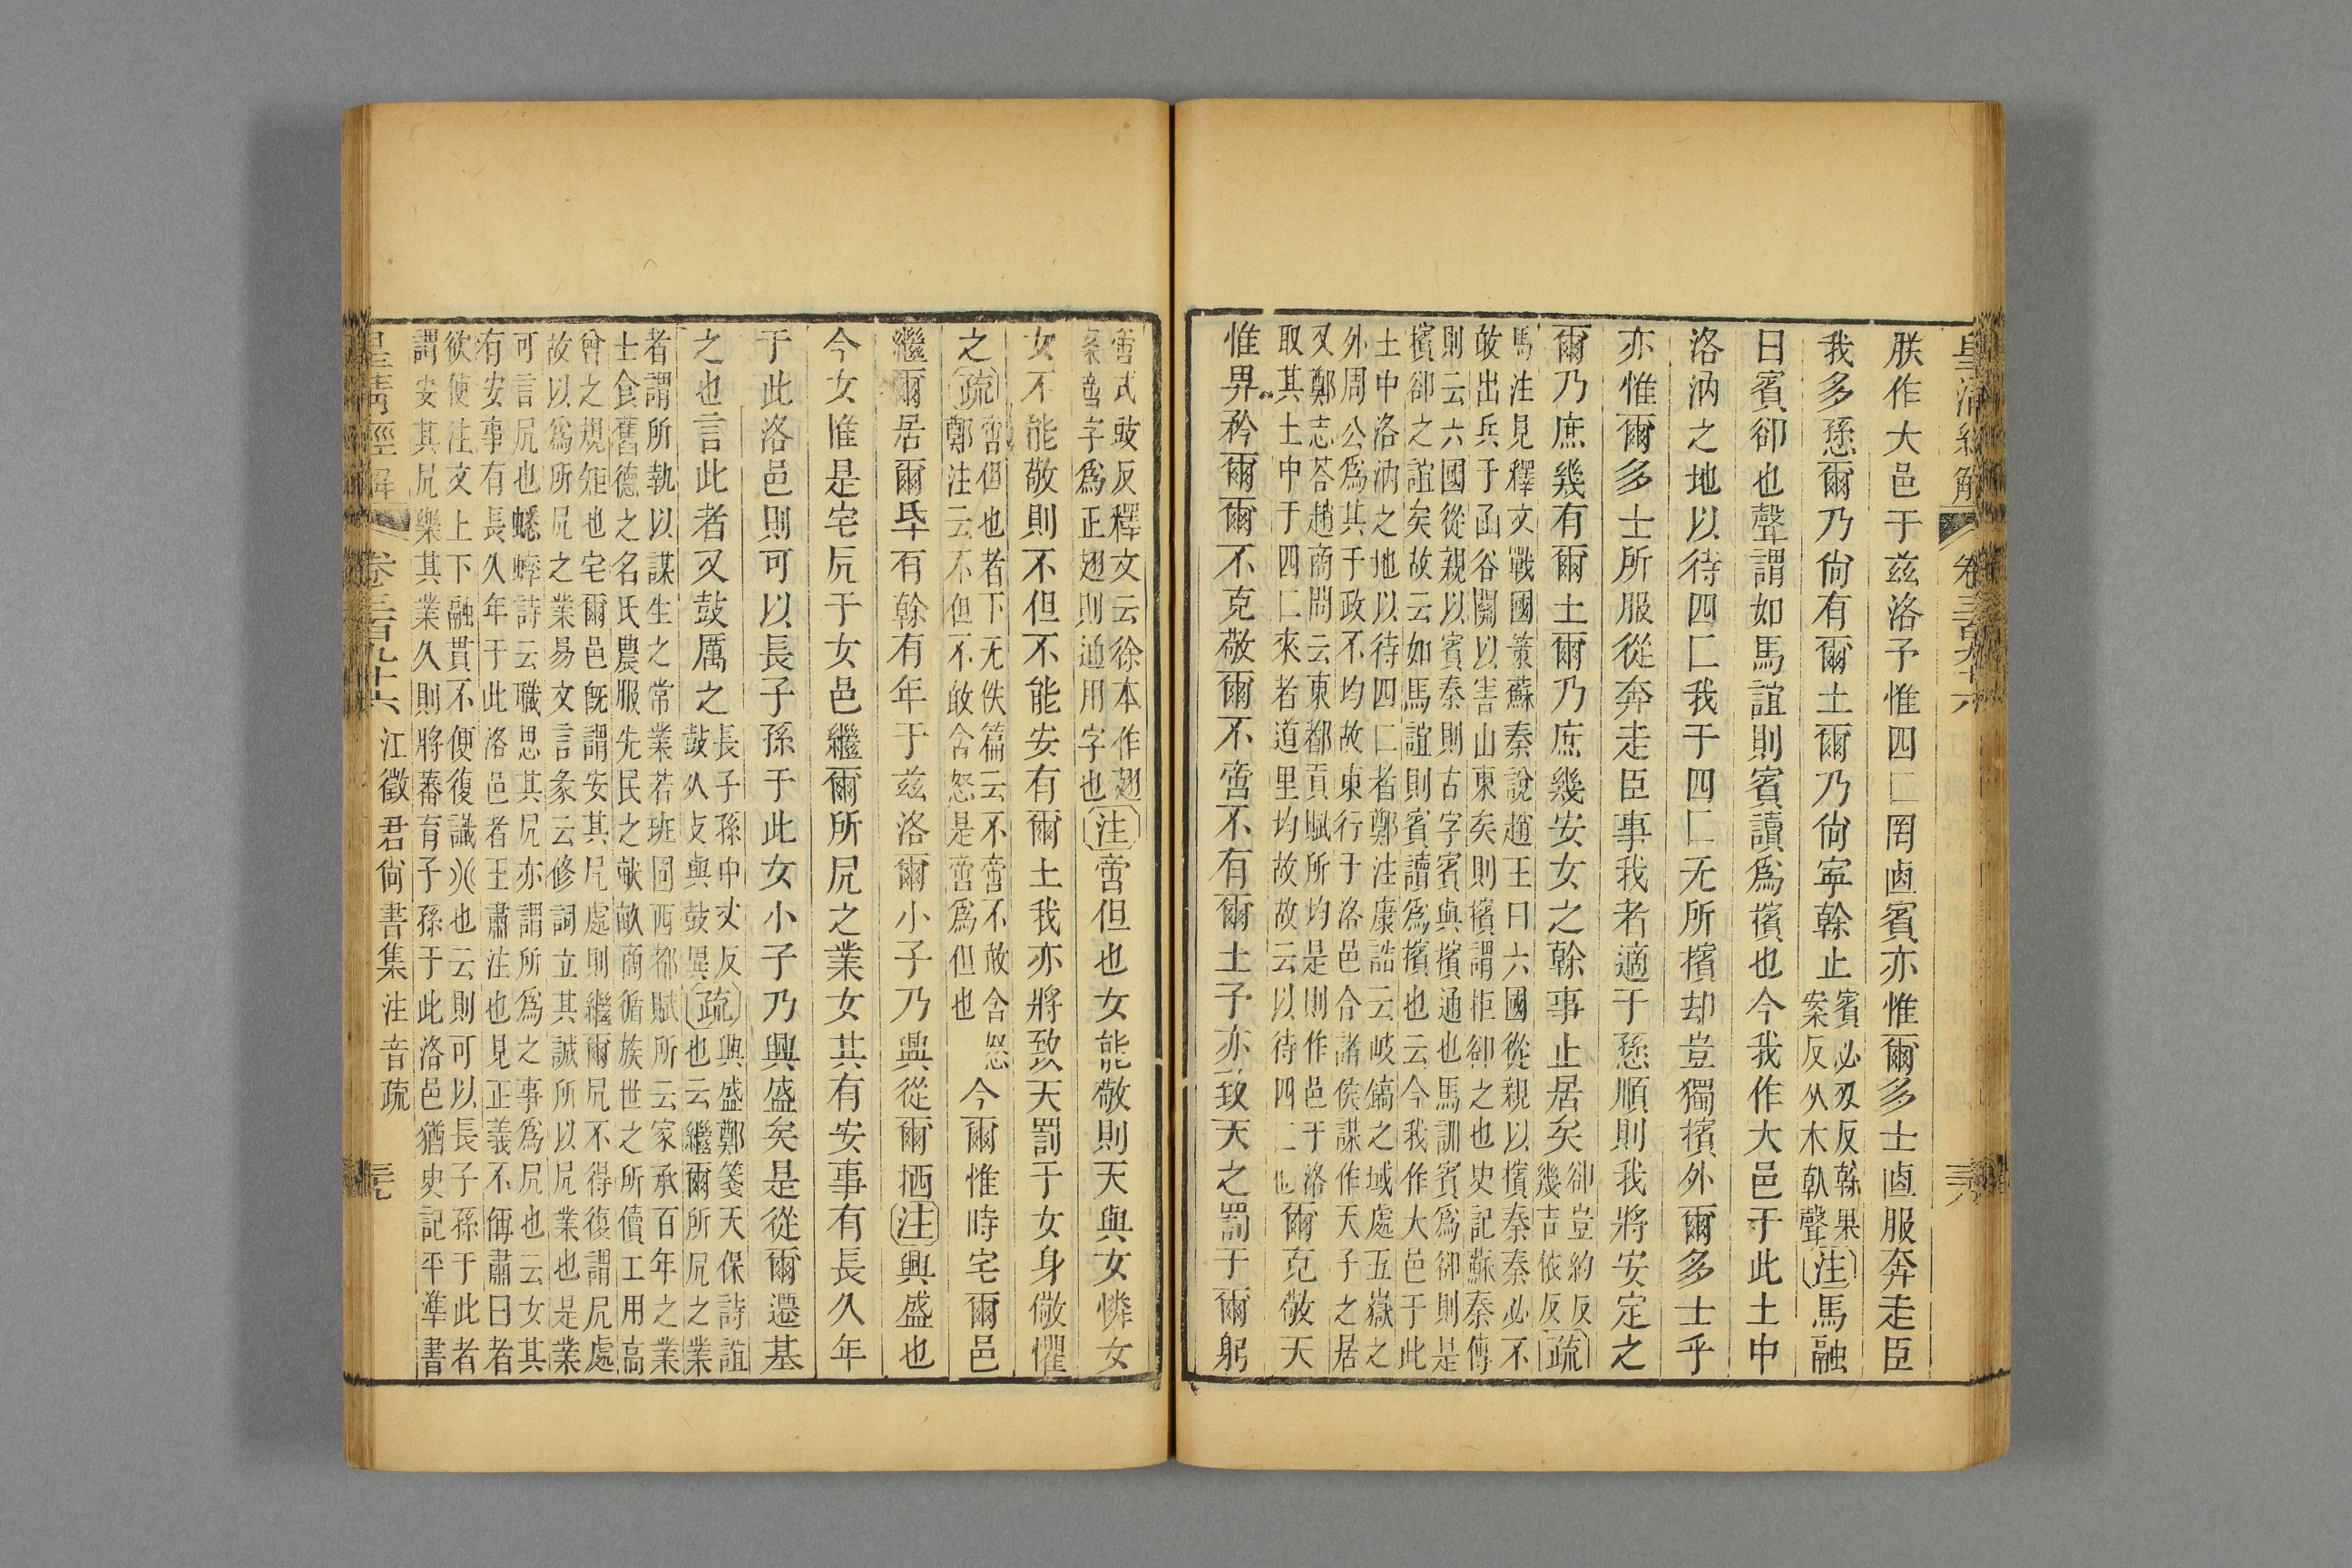 皇清經解 卷三百九十六 三八
朕作大邑于兹洛予惟四匚罔卣賓亦惟爾多士卣服奔走臣
我多愻爾乃尙有爾土爾乃尙寍榦止
賓必刄反榦果
案反从木倝聲
注馬融
曰賓卻也聲謂如馬誼則賓讀爲擯也今我作大邑于此土中
洛汭之地以待四匚我于四匚无所擯却豈獨擯外爾多士乎
亦惟爾多士所服從奔走臣事我者適于愻順則我將安定之
爾乃庶幾有爾土爾乃庶幾安女之榦事止居矣
卻豈約反
幾吉依反
疏
馬注見釋文戰國策蘇秦說趙王曰六國從親以擯秦秦必不
敢出兵于函谷關以害山東矣則擯謂拒卻之也史記蘇秦傳
則云六國從親以賓秦則古字賓與擯通也馬訓賓爲卻則是
擯卻之誼矣故云如馬誼則賓讀爲擯也云今我作大邑于此
土中洛汭之地以待四匚者鄭注康誥云岐鎬之域處五嶽之
外周公爲其于政不均故東行于洛邑合諸侯謀作天子之居
又鄭志荅趙商問云東都貢賦所均是則作邑于洛
取其土中于四匚來者道里均故故云以待四匚也
爾克敬天
惟畀矜爾爾不克敬爾不啻不有爾土予亦致天之罰于爾躬
啻式豉反釋文云徐本作翅
案啻字爲正翅則通用字也
注啻但也女能敬則天與女憐女
女不能敬則不但不能安有爾土我亦將致天罰于女身儆懼
之疏
啻但也者下无佚篇云不啻不敢含怒
鄭注云不但不敢含怒是啻爲但也
今爾惟時宅爾邑
繼爾居爾厥有榦有年于兹洛爾小子乃興從爾䙴注興盛也
今女惟是宅凥于女邑繼爾所凥之業女其有安事有長久年
于此洛邑則可以長子孫于此女小子乃興盛矣是從爾遷基
之也言此者又鼓厲之
長子孫中丈反
鼓从攴與鼔異
疏
興盛鄭箋天保詩誼
也云繼爾所凥之業
者謂所執以謀生之常業若班固西都賦所云家承百年之業
士食舊德之名氏農服先民之畎畝商循族世之所儥工用高
曾之規矩也宅爾邑旣謂安其凥處則繼爾凥不得復謂凥處
故以爲所凥之業易文言彖云修詞立其誠所以凥業也是業
可言凥也蟋蟀詩云職思其凥亦謂所爲之事爲凥也云女其
有安事有長久年于此洛邑者王肅注也見正義不偁肅曰者
欲使注文上下融貫不便復識𠔁也云則可以長子孫于此者
謂安其凥樂其業久則將蕃育子孫于此洛邑猶史記平準書
皇清經解 卷三百九十六 江徵君尙書集注音疏 三九